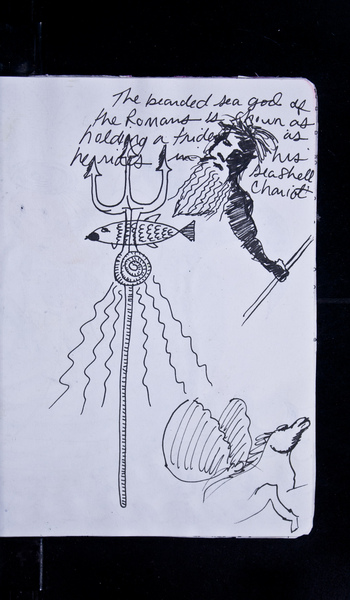 The bearded sea god of
the Romans is shown as
holding a trident as
he rides in his
seashell
Chariot